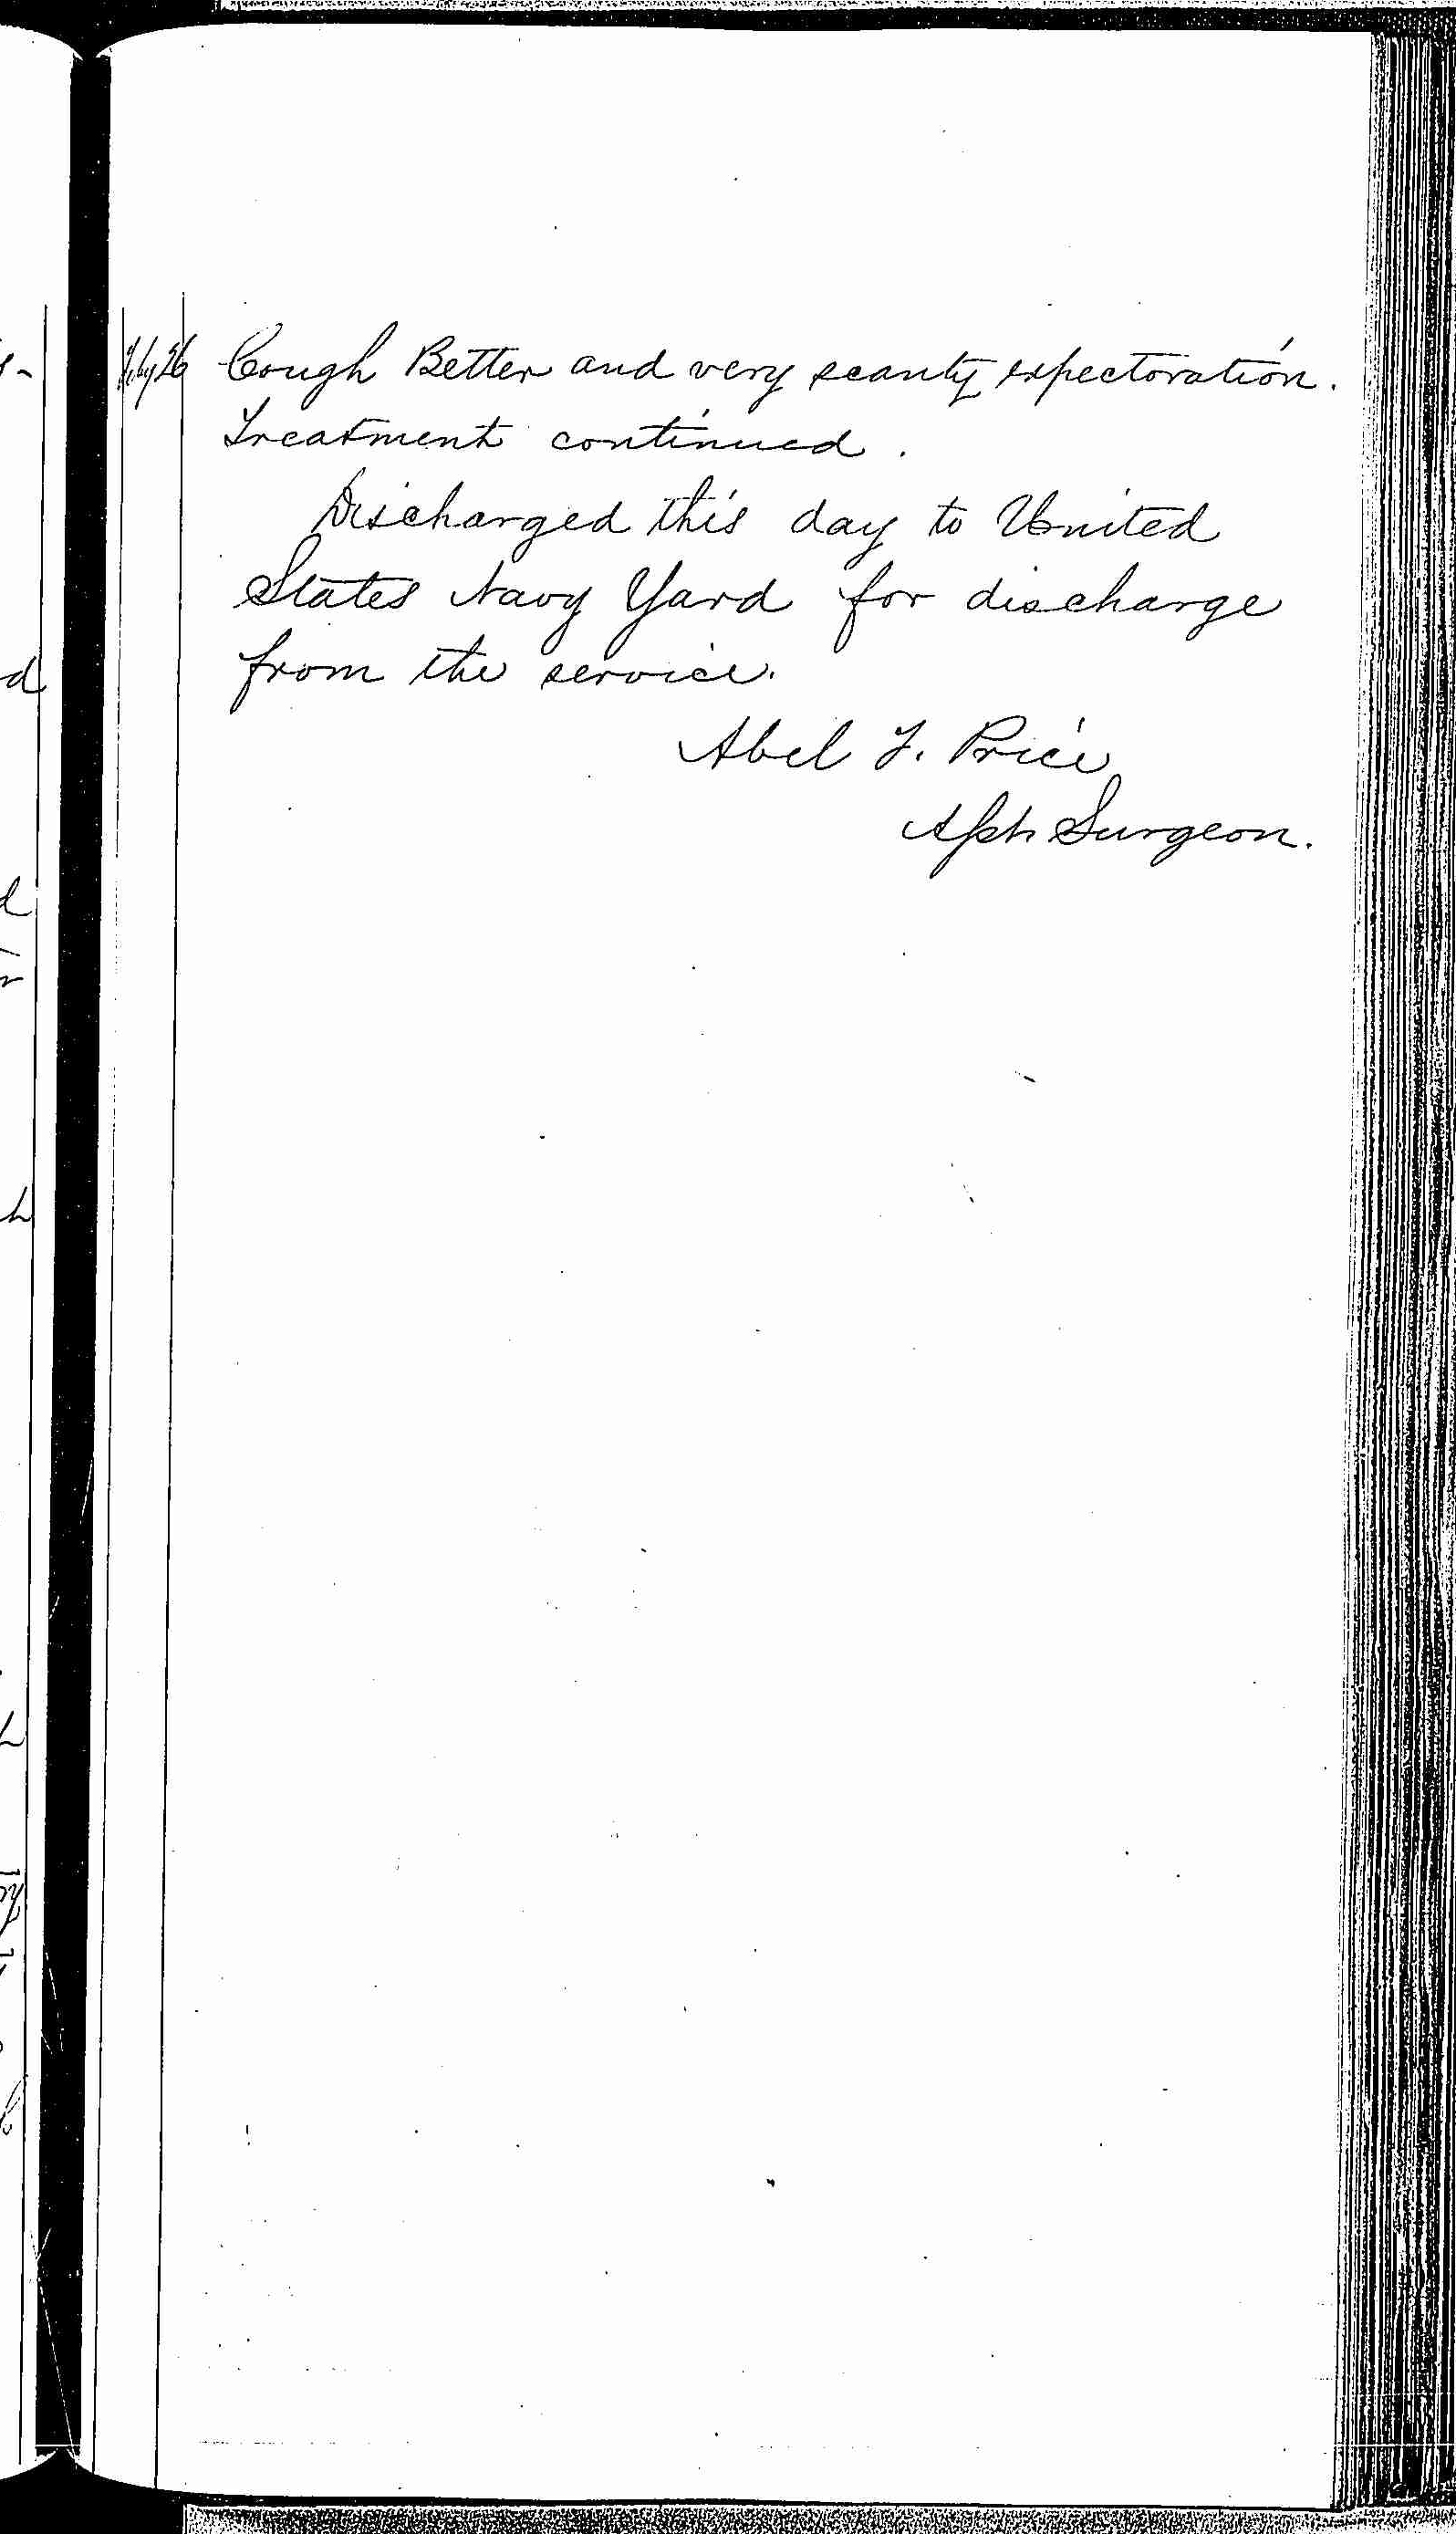 July 26 Cough Better and very scanty expectoration.
Treatment continued.
Discharged this day to United
States Navy Yard for discharge
from the service.
Abel F. Price
Asst Surgeon.